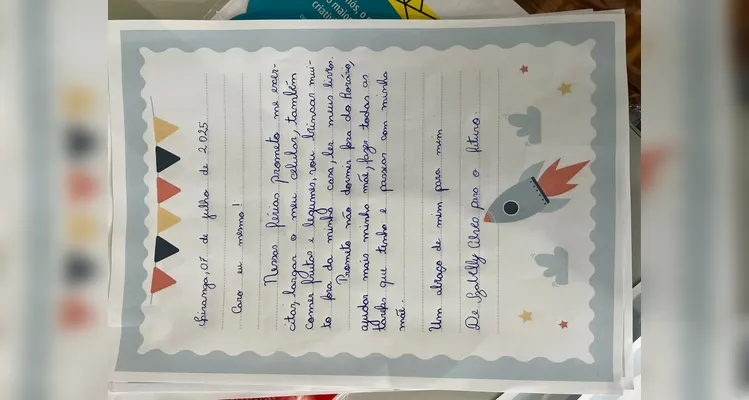 Ipiranga, 07 de julho de 2025
Caro eu mesmo!
Nessas férias prometo me exer-
citar, largar o meu celular, também
comer frutas e legumes, vou brincar mui-
to fora da minha casa, ler meus livros.
Prometo não dormir fora do horário,
ajudar mais minha mãe, fazer todas as
tarefas que tenho e passear com minha
mãe.
Um abraço de mim para mim
De Alves para o futuro.
nós, o
maior
criati